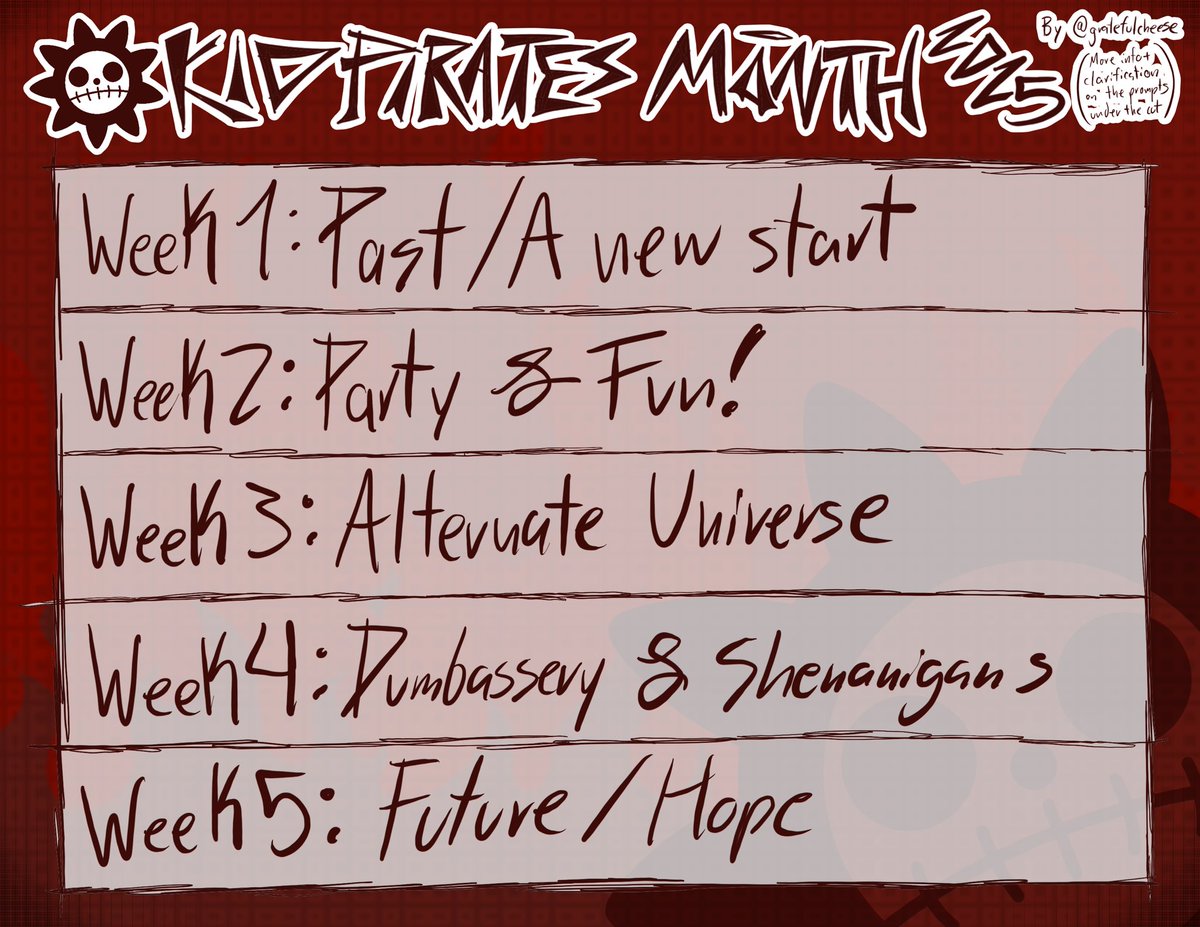 KID PIRATES MONTH 2025
By @gratefulcheese
(More info +
clarification
on the prompts
under the cut)
Week 1: Past/A new start
Week 2: Party & Fun!
Week 3: Alternate Universe
Week 4: Dumbassery & Shenanigans
Week 5: Future/Hope